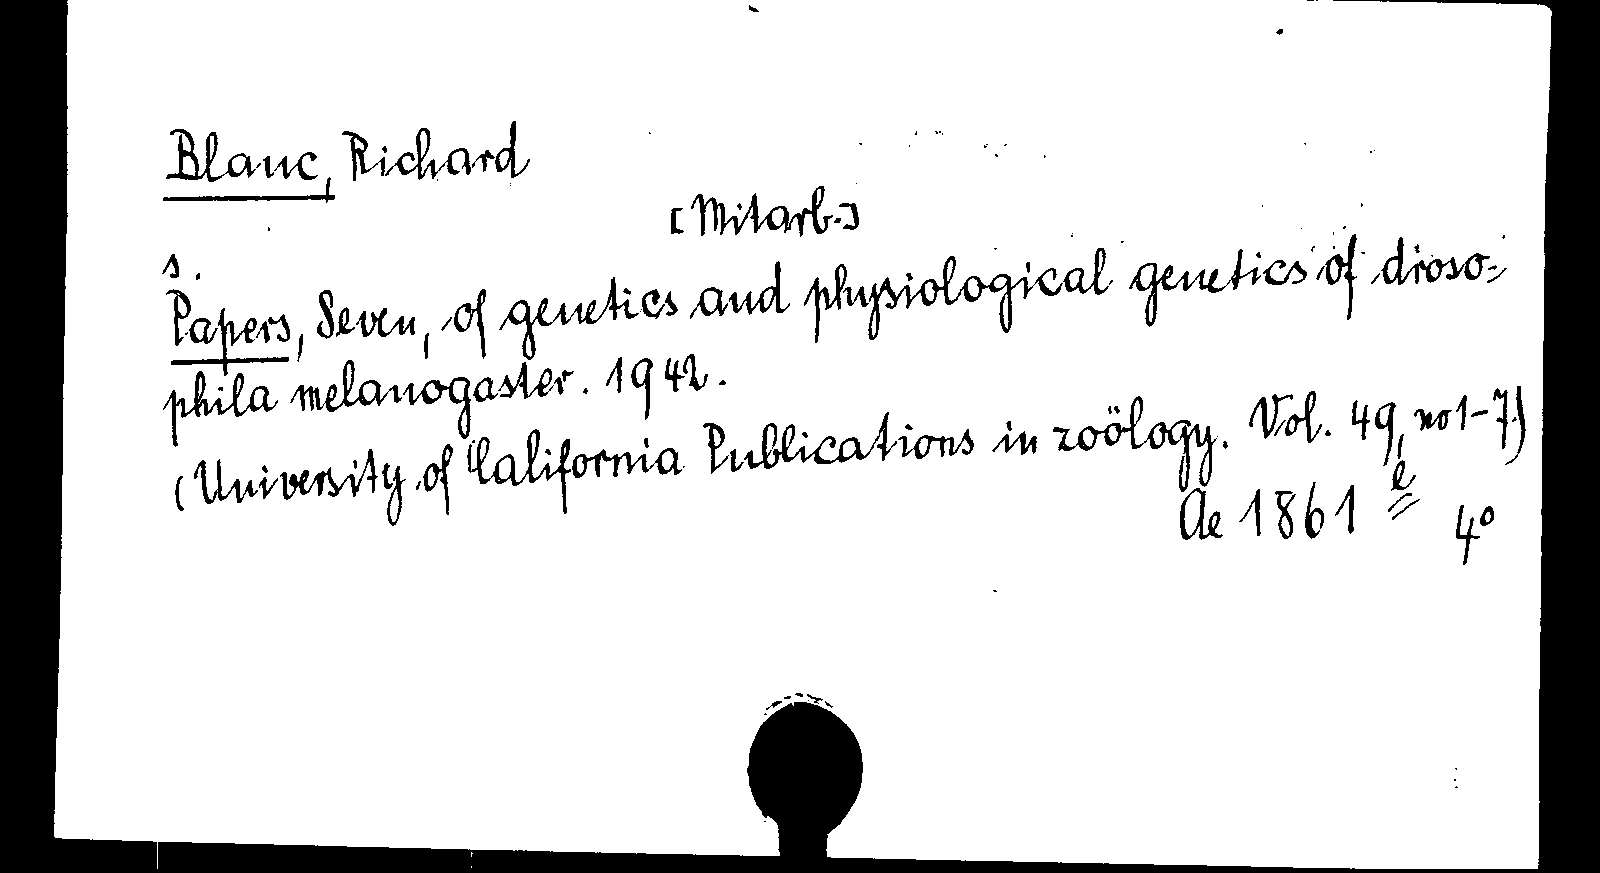 Blanc, Richard
[Mitarb.]
s.
Papers, Seven, of genetics and physiological genetics of droso=
phila melanogaster. 1942.
(University of California Publications in zoölogy. Vol. 49, no 1-7)
Ae 1861 e 4°